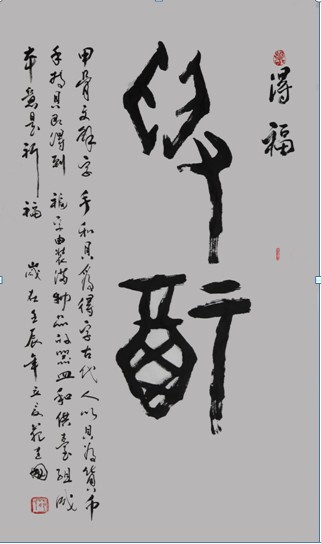 得福
得福
甲骨文解字 手和貝為得字古代人以貝為貨币
手持貝即得到 福字由裝滿物品的器皿和供臺組成
本意是祈福
歲在壬辰年立文